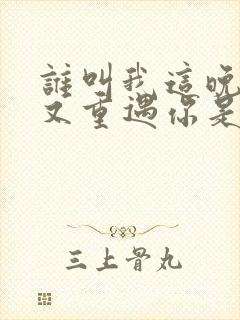 誰叫我這晚
又重遇你是
三上骨丸